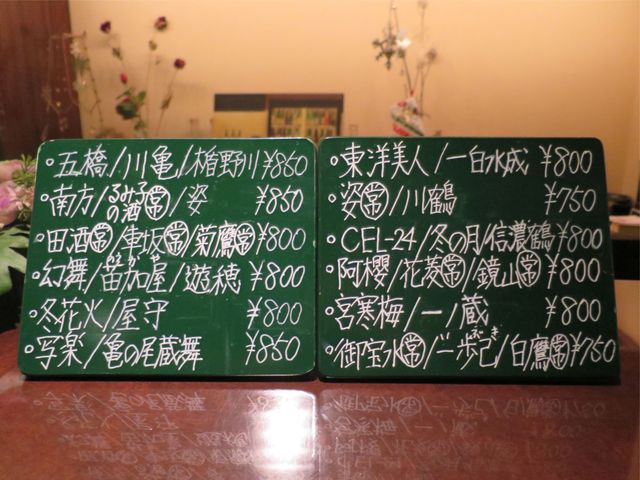 ・五橋/川亀/楯野川 ¥850
・南方/るみ子の酒㊖/姿 ¥850
・田酒㊖/車坂㊖/菊鷹㊖ ¥800
・幻舞/苗加屋/遊穂 ¥800
・冬花火/屋守 ¥800
・写楽/亀の尾蔵舞 ¥850
・東洋美人/一白水成 ¥800
・姿㊖/川鶴 ¥750
・CEL-24/冬の月/信濃鶴 ¥800
・阿櫻/花菱㊖/鏡山㊖ ¥800
・宮寒梅/一ノ蔵 ¥800
・御宝水㊖/一歩己/白鷹㊖ ¥750